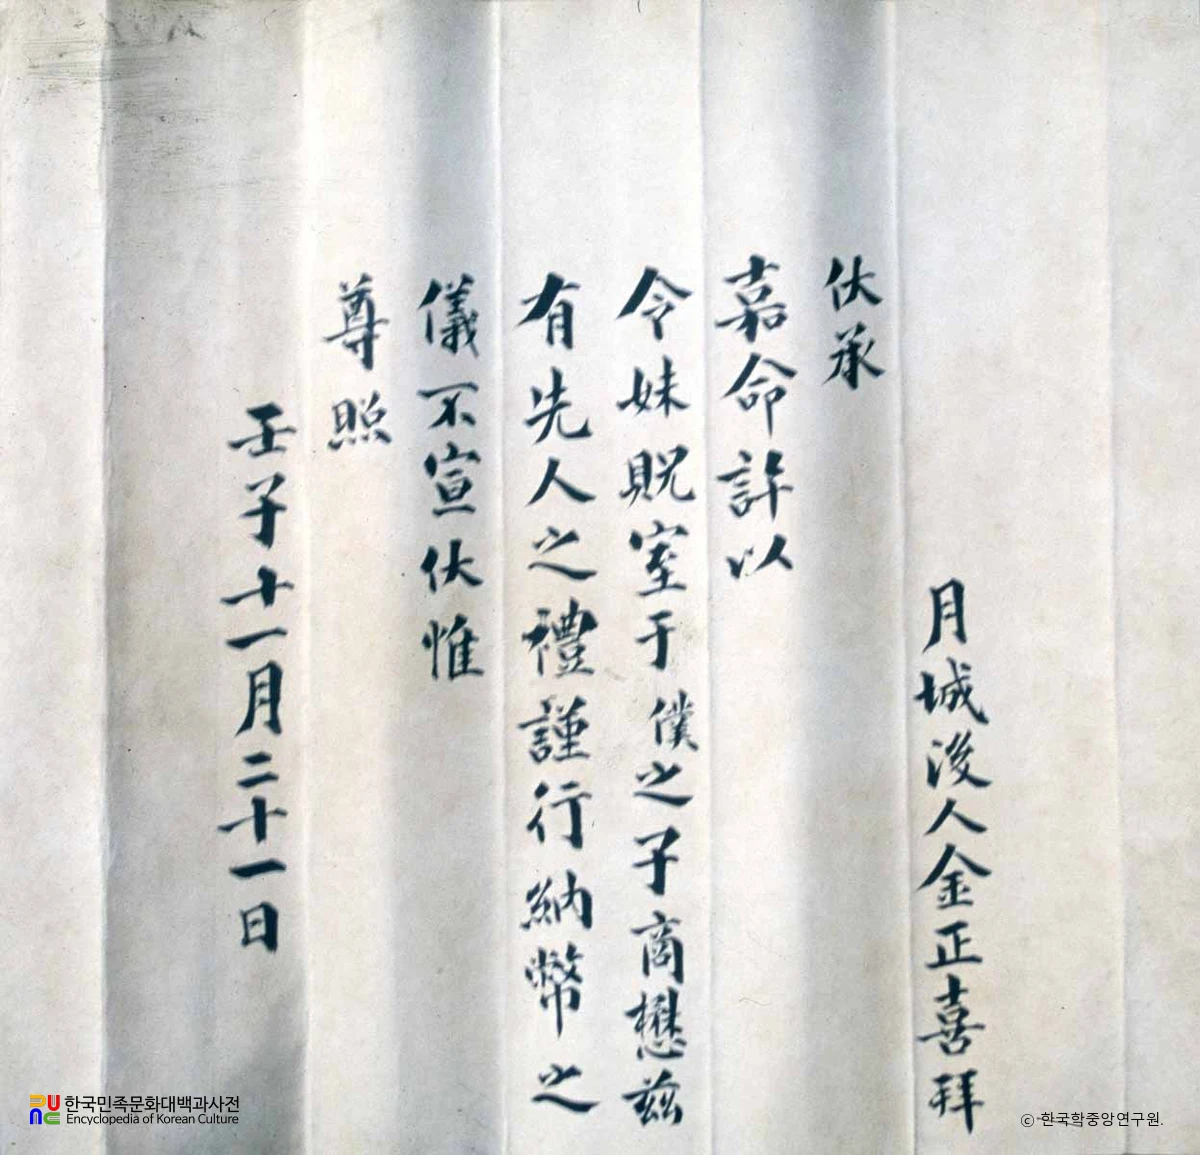 月城後人金正喜拜
伏承
嘉命許以
令妹貺室于僕之子商懋玆
有先人之禮謹行納幣之
儀不宣伏惟
尊照
壬子十一月二十一日
한국민족문화대백과사전
Encyclopedia of Korean Culture
ⓒ 한국학중앙연구원.